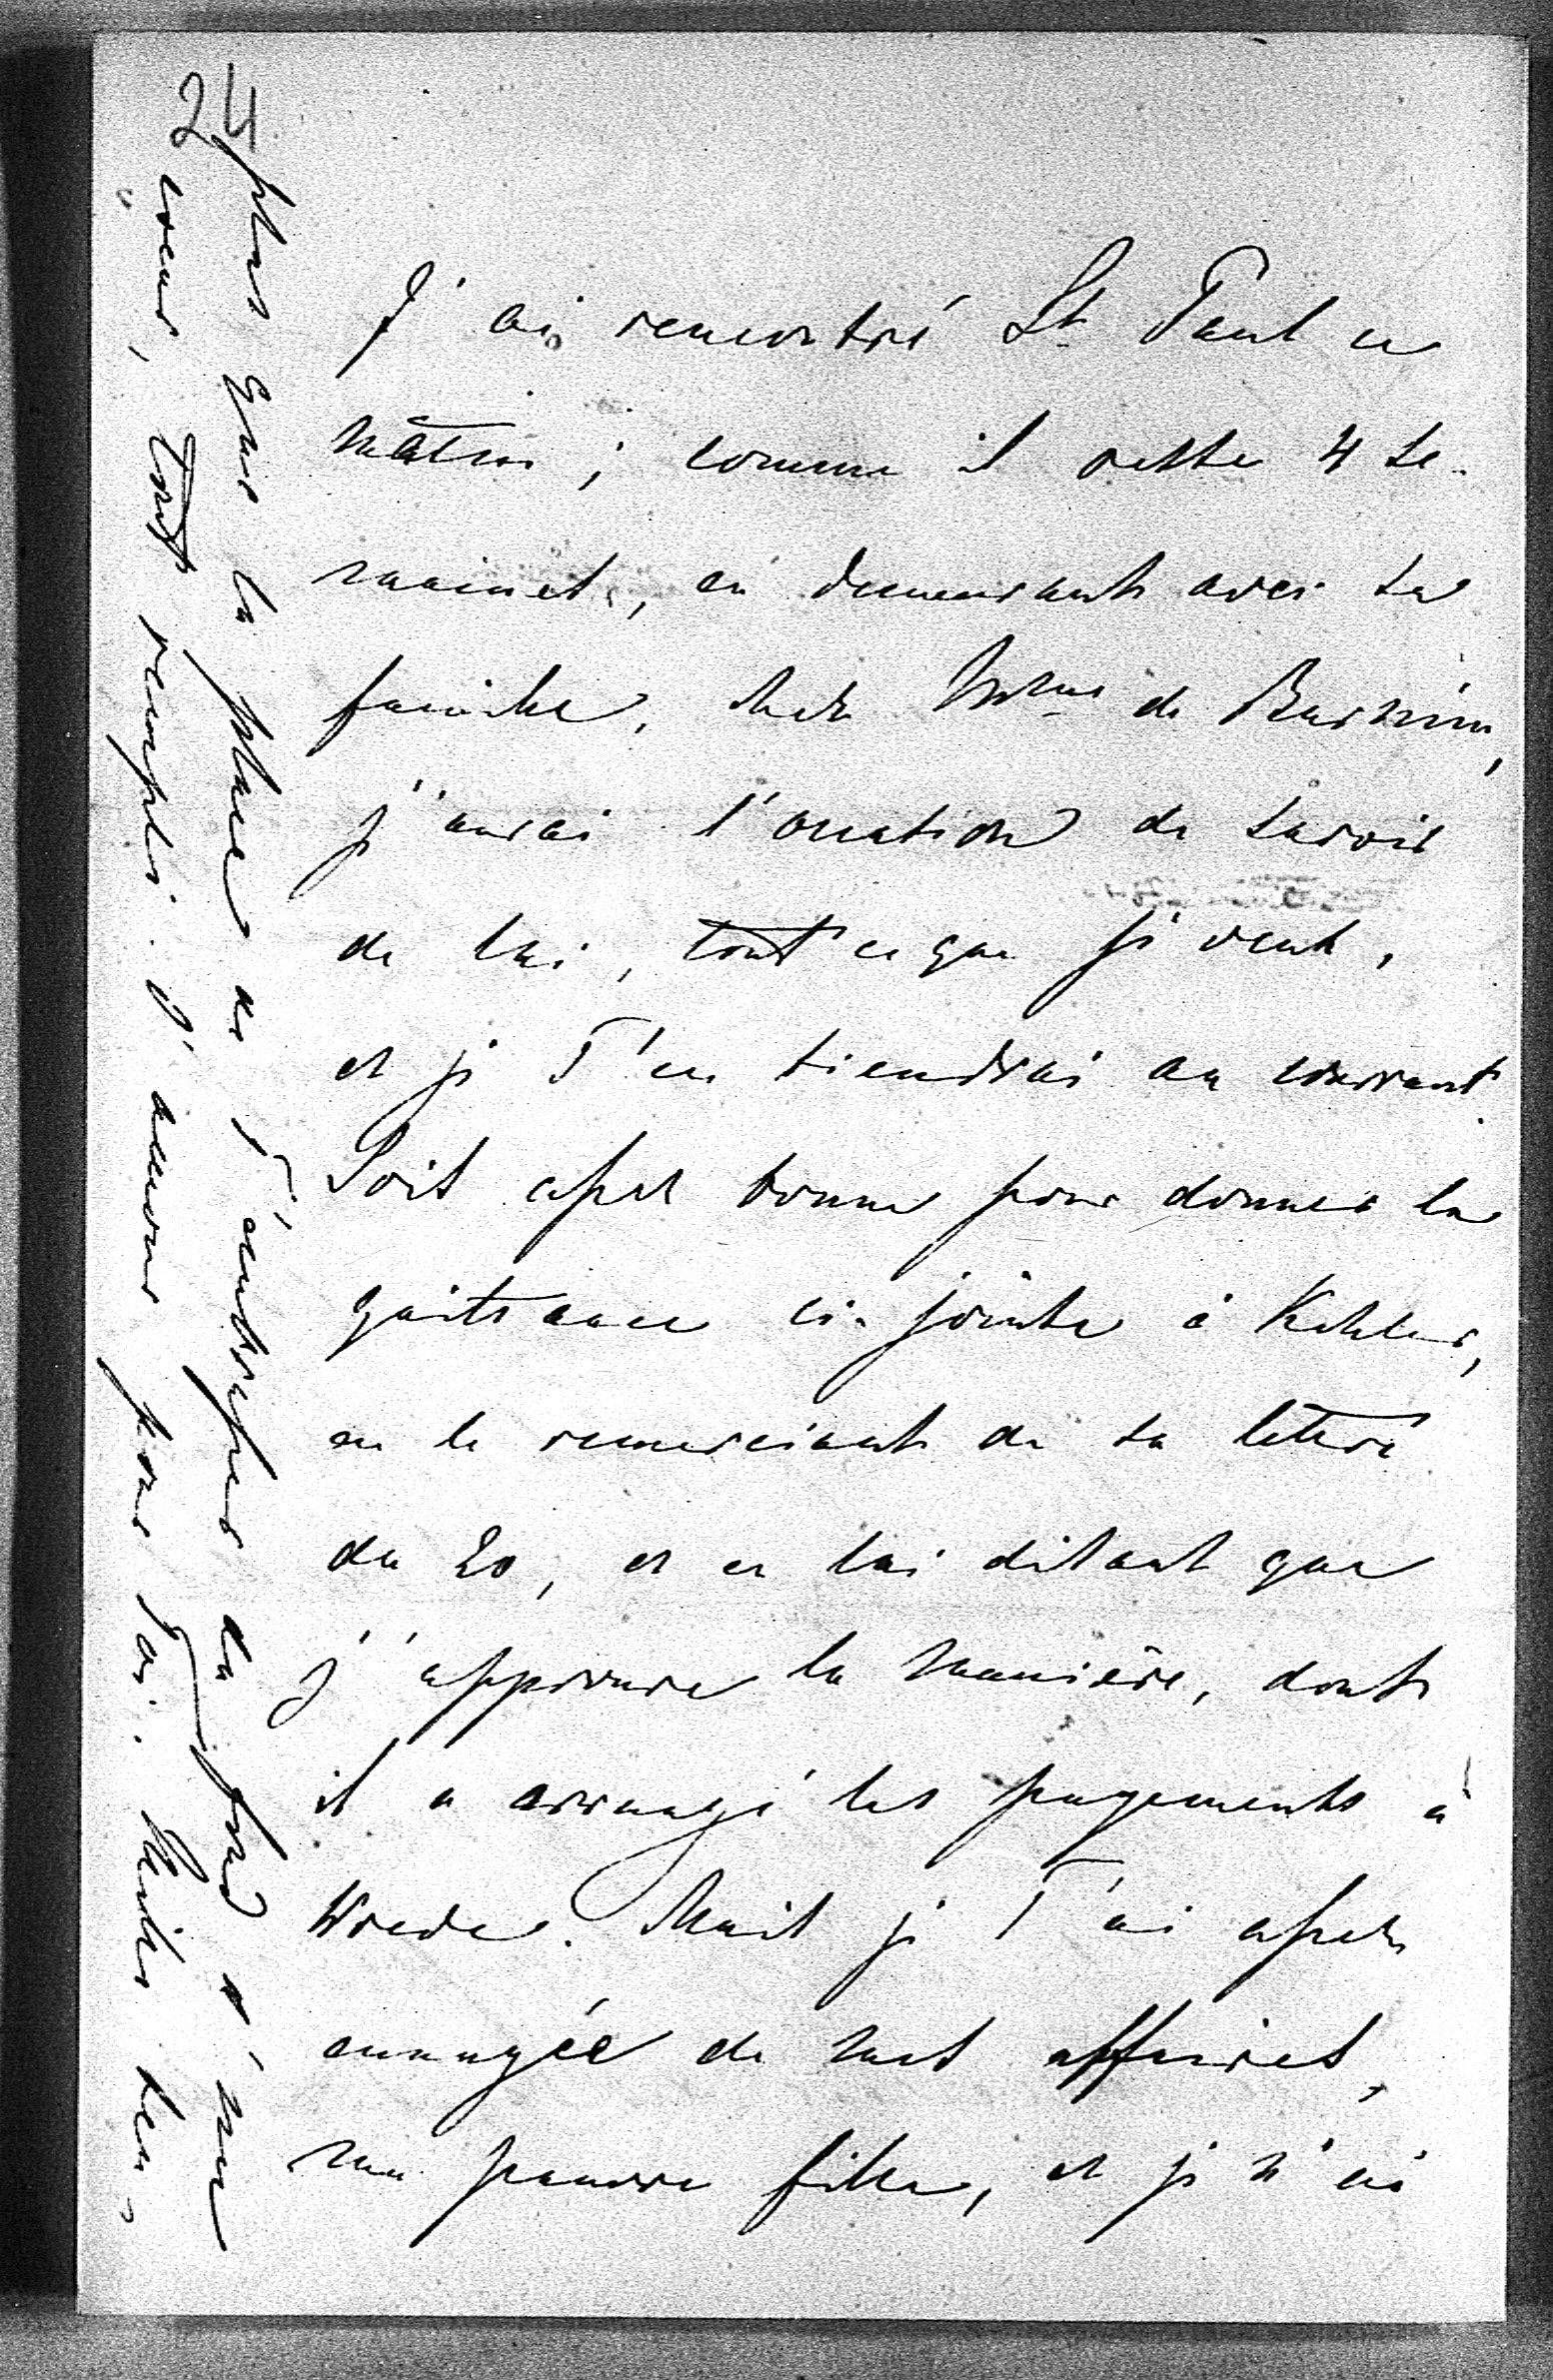 24
J'ai rencontré St. Paul ce
matin; comme il reste 4 se-
maines, en demeurant avec sa
famille, chez Mme de
j'aurai l'occasion de savoir
de lui, tout ce que je veut,
et je T'en tiendrai au courrant.
Soit assez bonne pour donner la
quittance ci-jointe à Kohler,
en le remerciant de sa lettre
du 20, et en lui disant que
j'approuve la manière, dont
il a arrangé les payements à
Wrede. Mais je T'ai assez
ennuyée de mes affaires,
ma pauvre fille, et je n'ai
plus que la place de T'embrasser du fond d'un
coeur, tout rempli d'amour pour Toi.